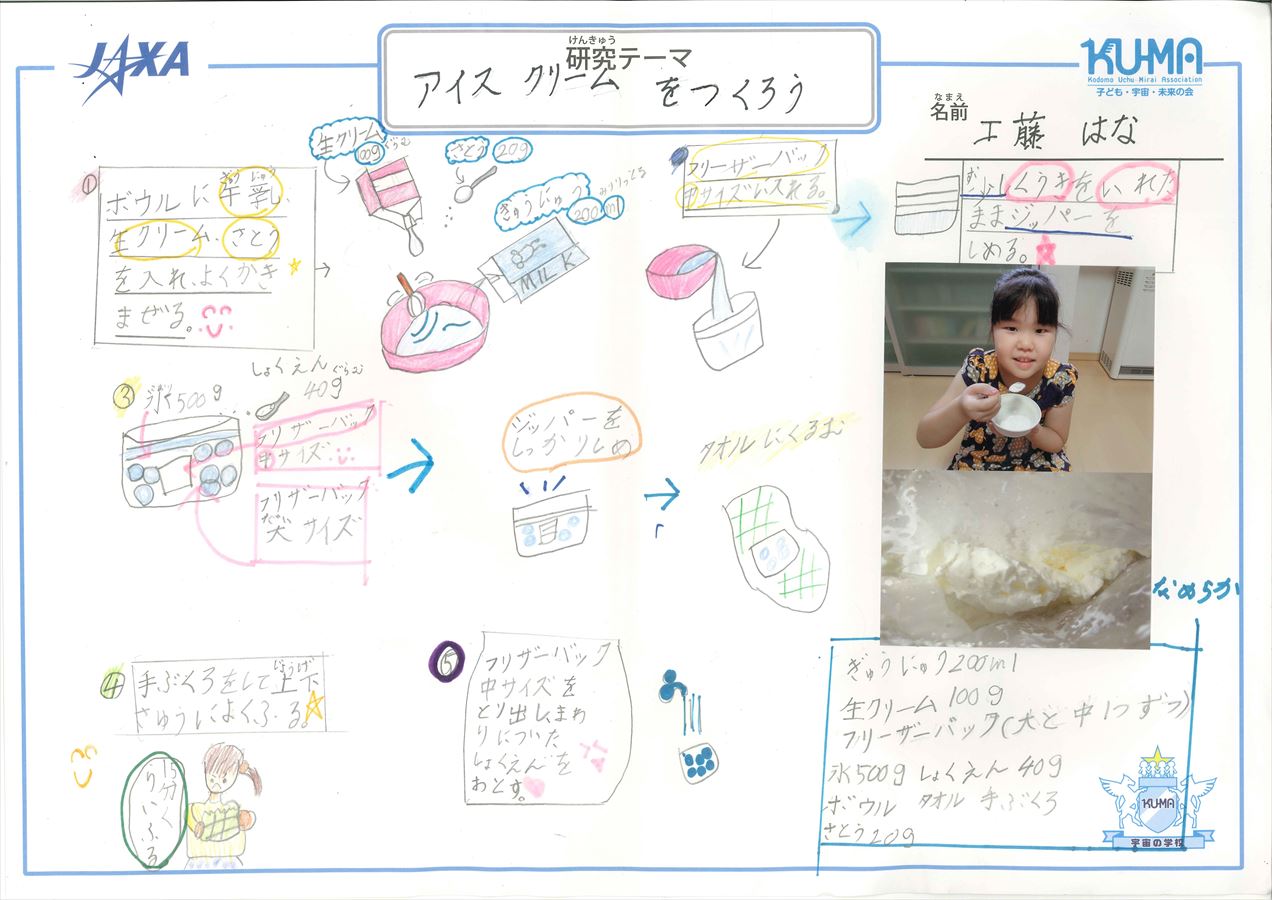 JAXA
けんきゅう
研究テーマ
アイス クリーム をつくろう
KU-MA
Kodomo Uchu Mirai Association
子ども・宇宙・未来の会
なまえ
名前
工藤 はな
①
ボウルに牛乳、
ぎゅうにゅう
生クリーム、さとう
を入れ、よくかき
まぜる。
生クリーム
100g
ぐらむ
さとう 20g
ぎゅうにゅう
200ml
みりりっとる
MILK
フリーザーバック
中サイズに入れる。
少しくうきをいれた
ままジッパーを
しめる。
③ 氷500g
しょくえん
40g
ぐらむ
フリザーバック
中サイズ
フリザーバック
だい
大サイズ
ジッパーを
しっかりしめ
タオルにくるむ
なめらか
④
手ぶくろをして上下
じょうげ
さゆうによくふる。
15分く
らいふる
⑤
フリザーバック
中サイズを
とり出し、まわ
りについた
しょくえんを
おとす。
ぎゅうにゅう200ml
生クリーム 100g
フリーザーバック(大と中1つずつ)
氷500g しょくえん 40g
ボウル タオル 手ぶくろ
さとう20g
KUMA
宇宙の学校